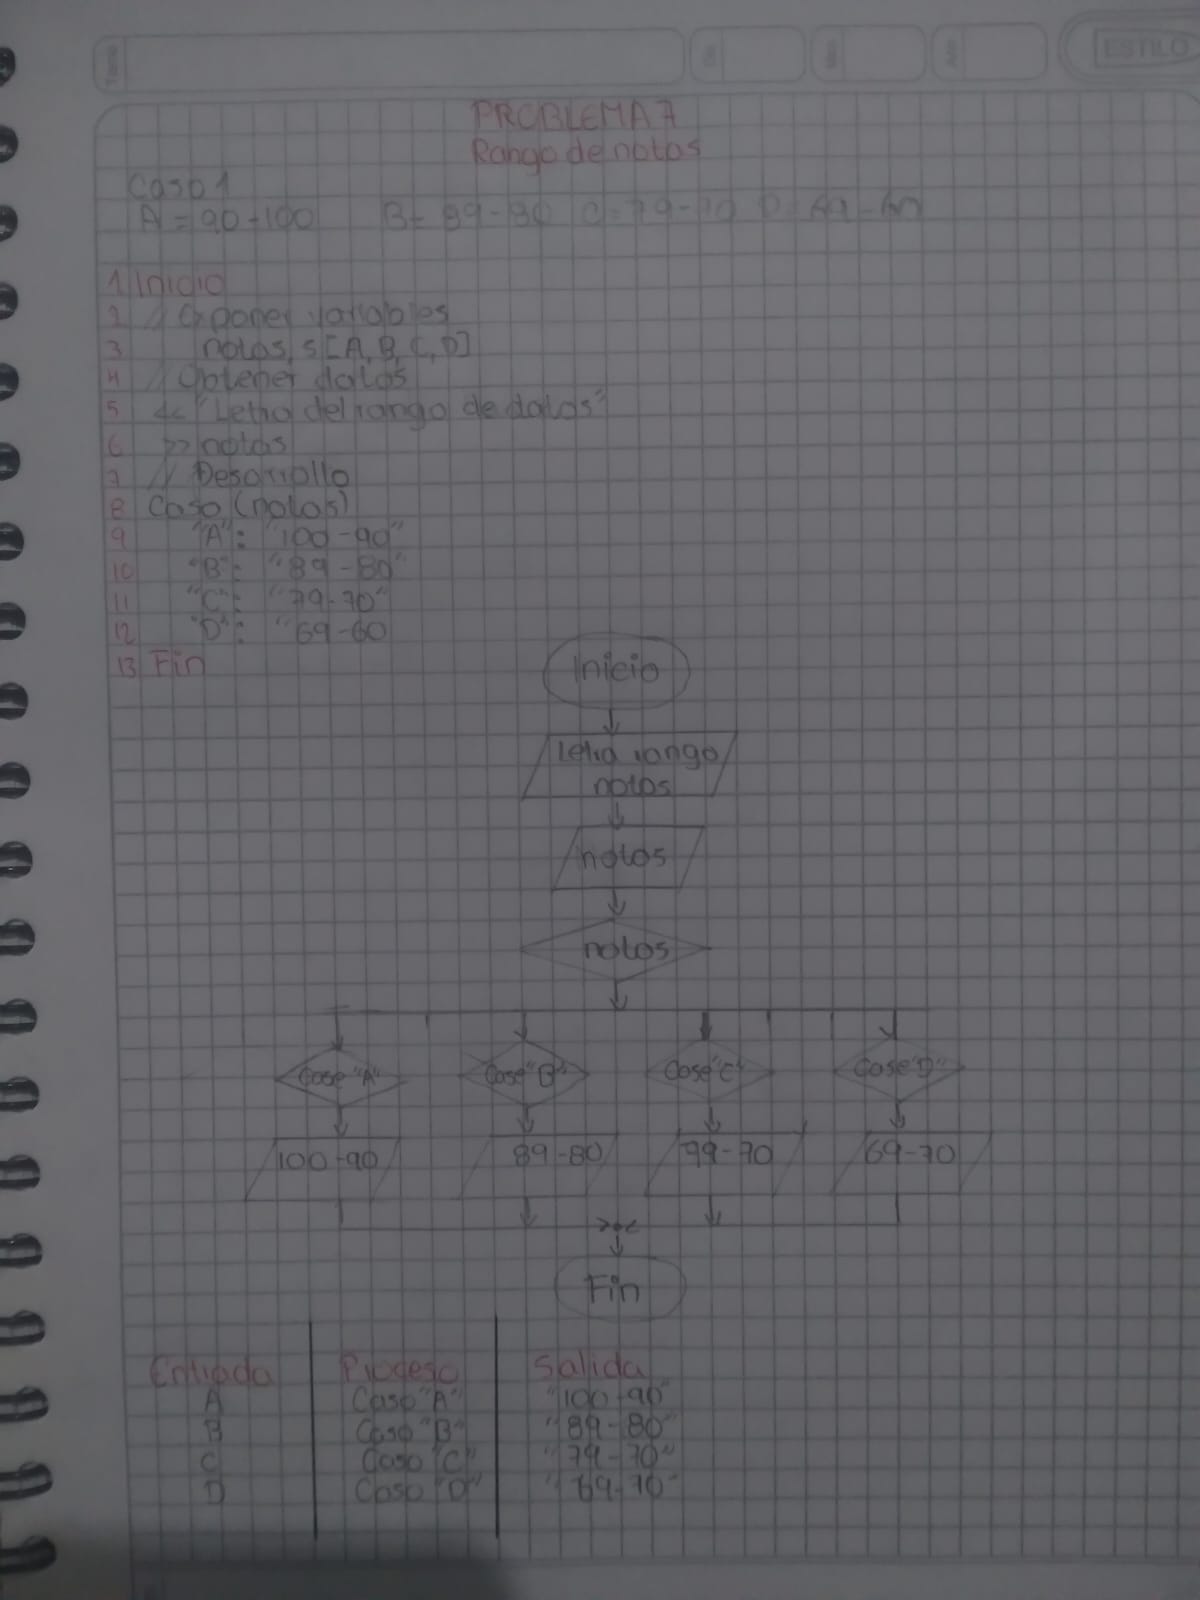 ESTILO
PROBLEMA 7
Rango de notas
Caso 1
A = 90-100 B = 89-80 C = 79-70 D = 69-60
1 Inicio
2 // Exponer variables
3 notas, s [A, B, C, D]
4 // Obtener datos
5 << "Letra del rango de datos"
6 >> notas
7 // Desarrollo
8 Caso (notas)
9 "A": "100-90"
10 "B": "89-80"
11 "C": "79-70"
12 "D": "69-60
13 Fin
Inicio
Letra rango
notas
notas
notas
Case "A" Case "B" Case "C" Case "D"
100-90 89-80 79-70 69-70
Fin
Entrada Proceso Salida
A Caso "A" "100-90"
B Caso "B" "89-80"
C Caso "C" "79-70"
D Caso "D" "69-70"